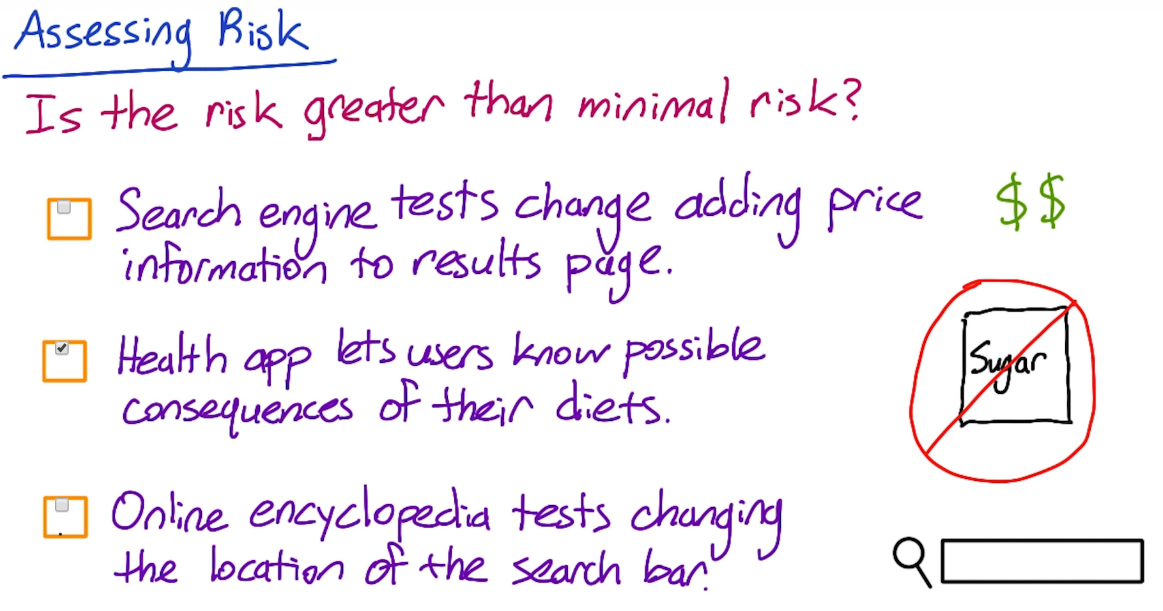 Assessing Risk
Is the risk greater than minimal risk?
Search engine tests change adding price $$
information to results page.
Health app lets users know possible
consequences of their diets.
Sugar
Online encyclopedia tests changing
the location of the search bar.